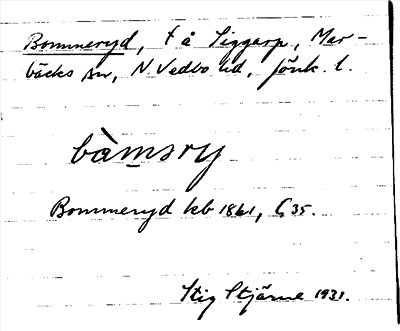 Bommeryd, t å Siggarp, Mar-
bäcks sn, N. Vedbo hd, Jönk. l.
bàmsry
Bommeryd kb 1861, G 35.
Stig Stjärne 1931.